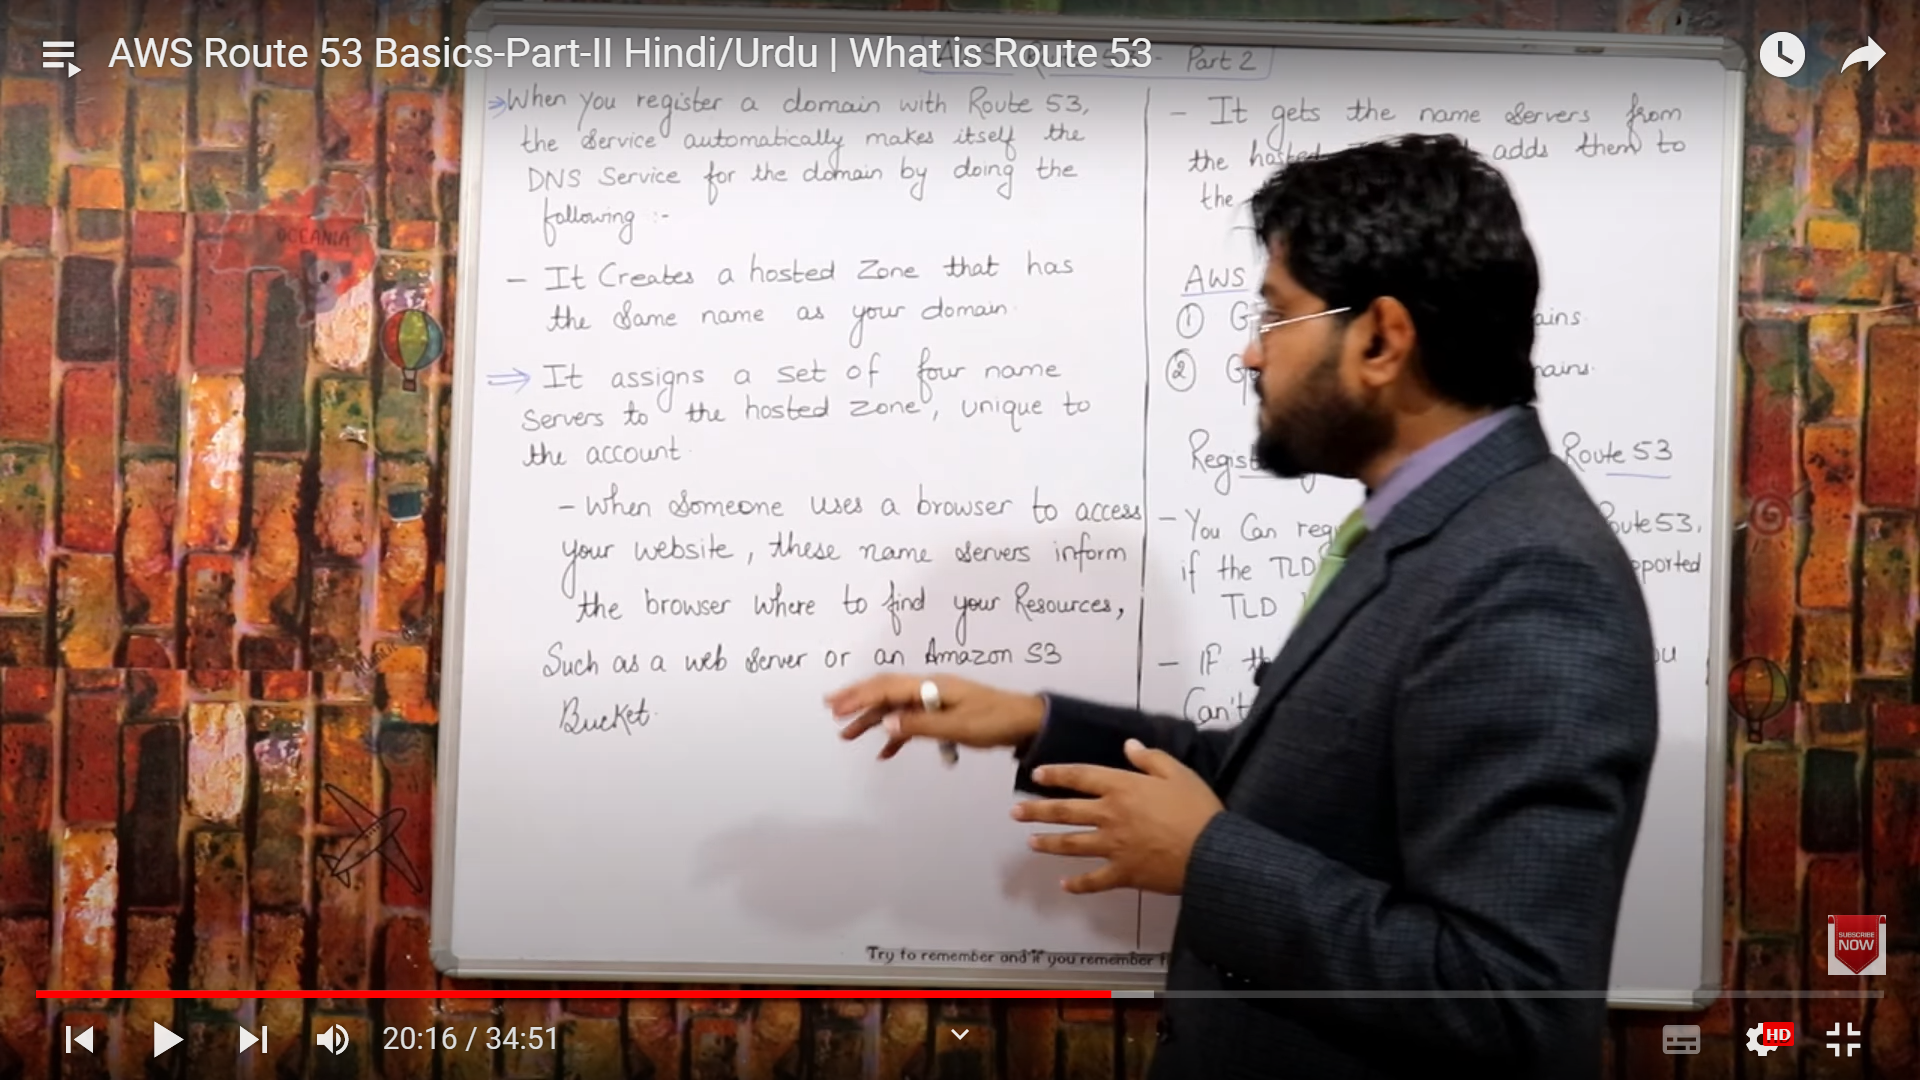 AWS Route 53 Basics-Part-II Hindi/Urdu | What is Route 53
Part 2
When you register a domain with Route 53,
the Service automatically makes itself the
DNS Service for the domain by doing the
following :-
- It Creates a hosted Zone that has
the Same name as your domain.
⇒ It assigns a set of four name
Servers to the hosted zone, unique to
the account.
- When Someone uses a browser to access
your website, these name Servers inform
the browser where to find your Resources,
Such as a web Server or an Amazon S3
Bucket.
- It gets the name Servers from
the hosted adds them to
the
AWS
①
②
Route 53
- You Can Route 53,
if the TLD
TLD
- IF
Can't
OCEANIA
Try to remember and if you remember
SUBSCRIBE
NOW
20:16 / 34:51
HD